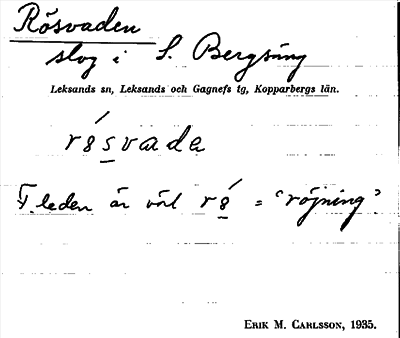 Rösvaden
slog i S. Bergsäng
Leksands sn, Leksands och Gagnefs tg, Kopparbergs län.
r8́s̲vada
F.leden är väl r8̲́ = "röjning".
ERIK M. CARLSSON, 1935.